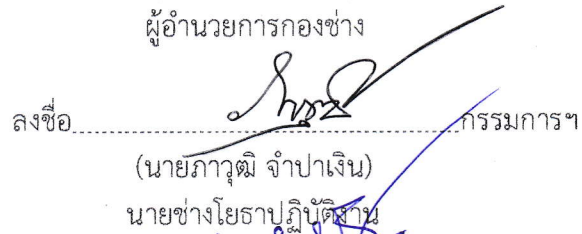 ผู้อำนวยการกองช่าง
ลงชื่อ........................................................กรรมการฯ
(นายภาวุฒิ จำปาเงิน)
นายช่างโยธาปฏิบัติงาน